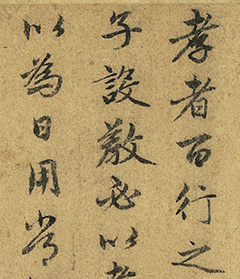 孝者百行之
子設教必以孝
以為日用常